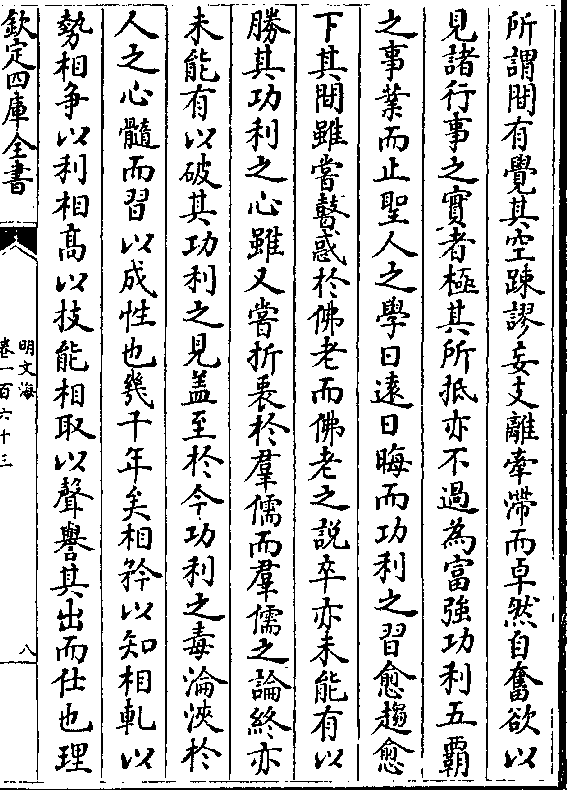 所謂間有覺其空踈謬妄支離牽滯而卓然自奮欲以
見諸行事之實者極其所抵亦不過為富強功利五霸
之事業而止聖人之學日遠日晦而功利之習愈趨愈
下其間雖嘗瞽惑於佛老而佛老之説卒亦未能有以
勝其功利之心雖又嘗折衷於羣儒而羣儒之論終亦
未能有以破其功利之見盖至於今功利之毒淪浹於
人之心髓而習以成性也幾千年矣相矜以知相軋以
勢相争以利相髙以技能相取以聲譽其出而仕也理
欽定四庫全書
明文海
卷一百六十三
八